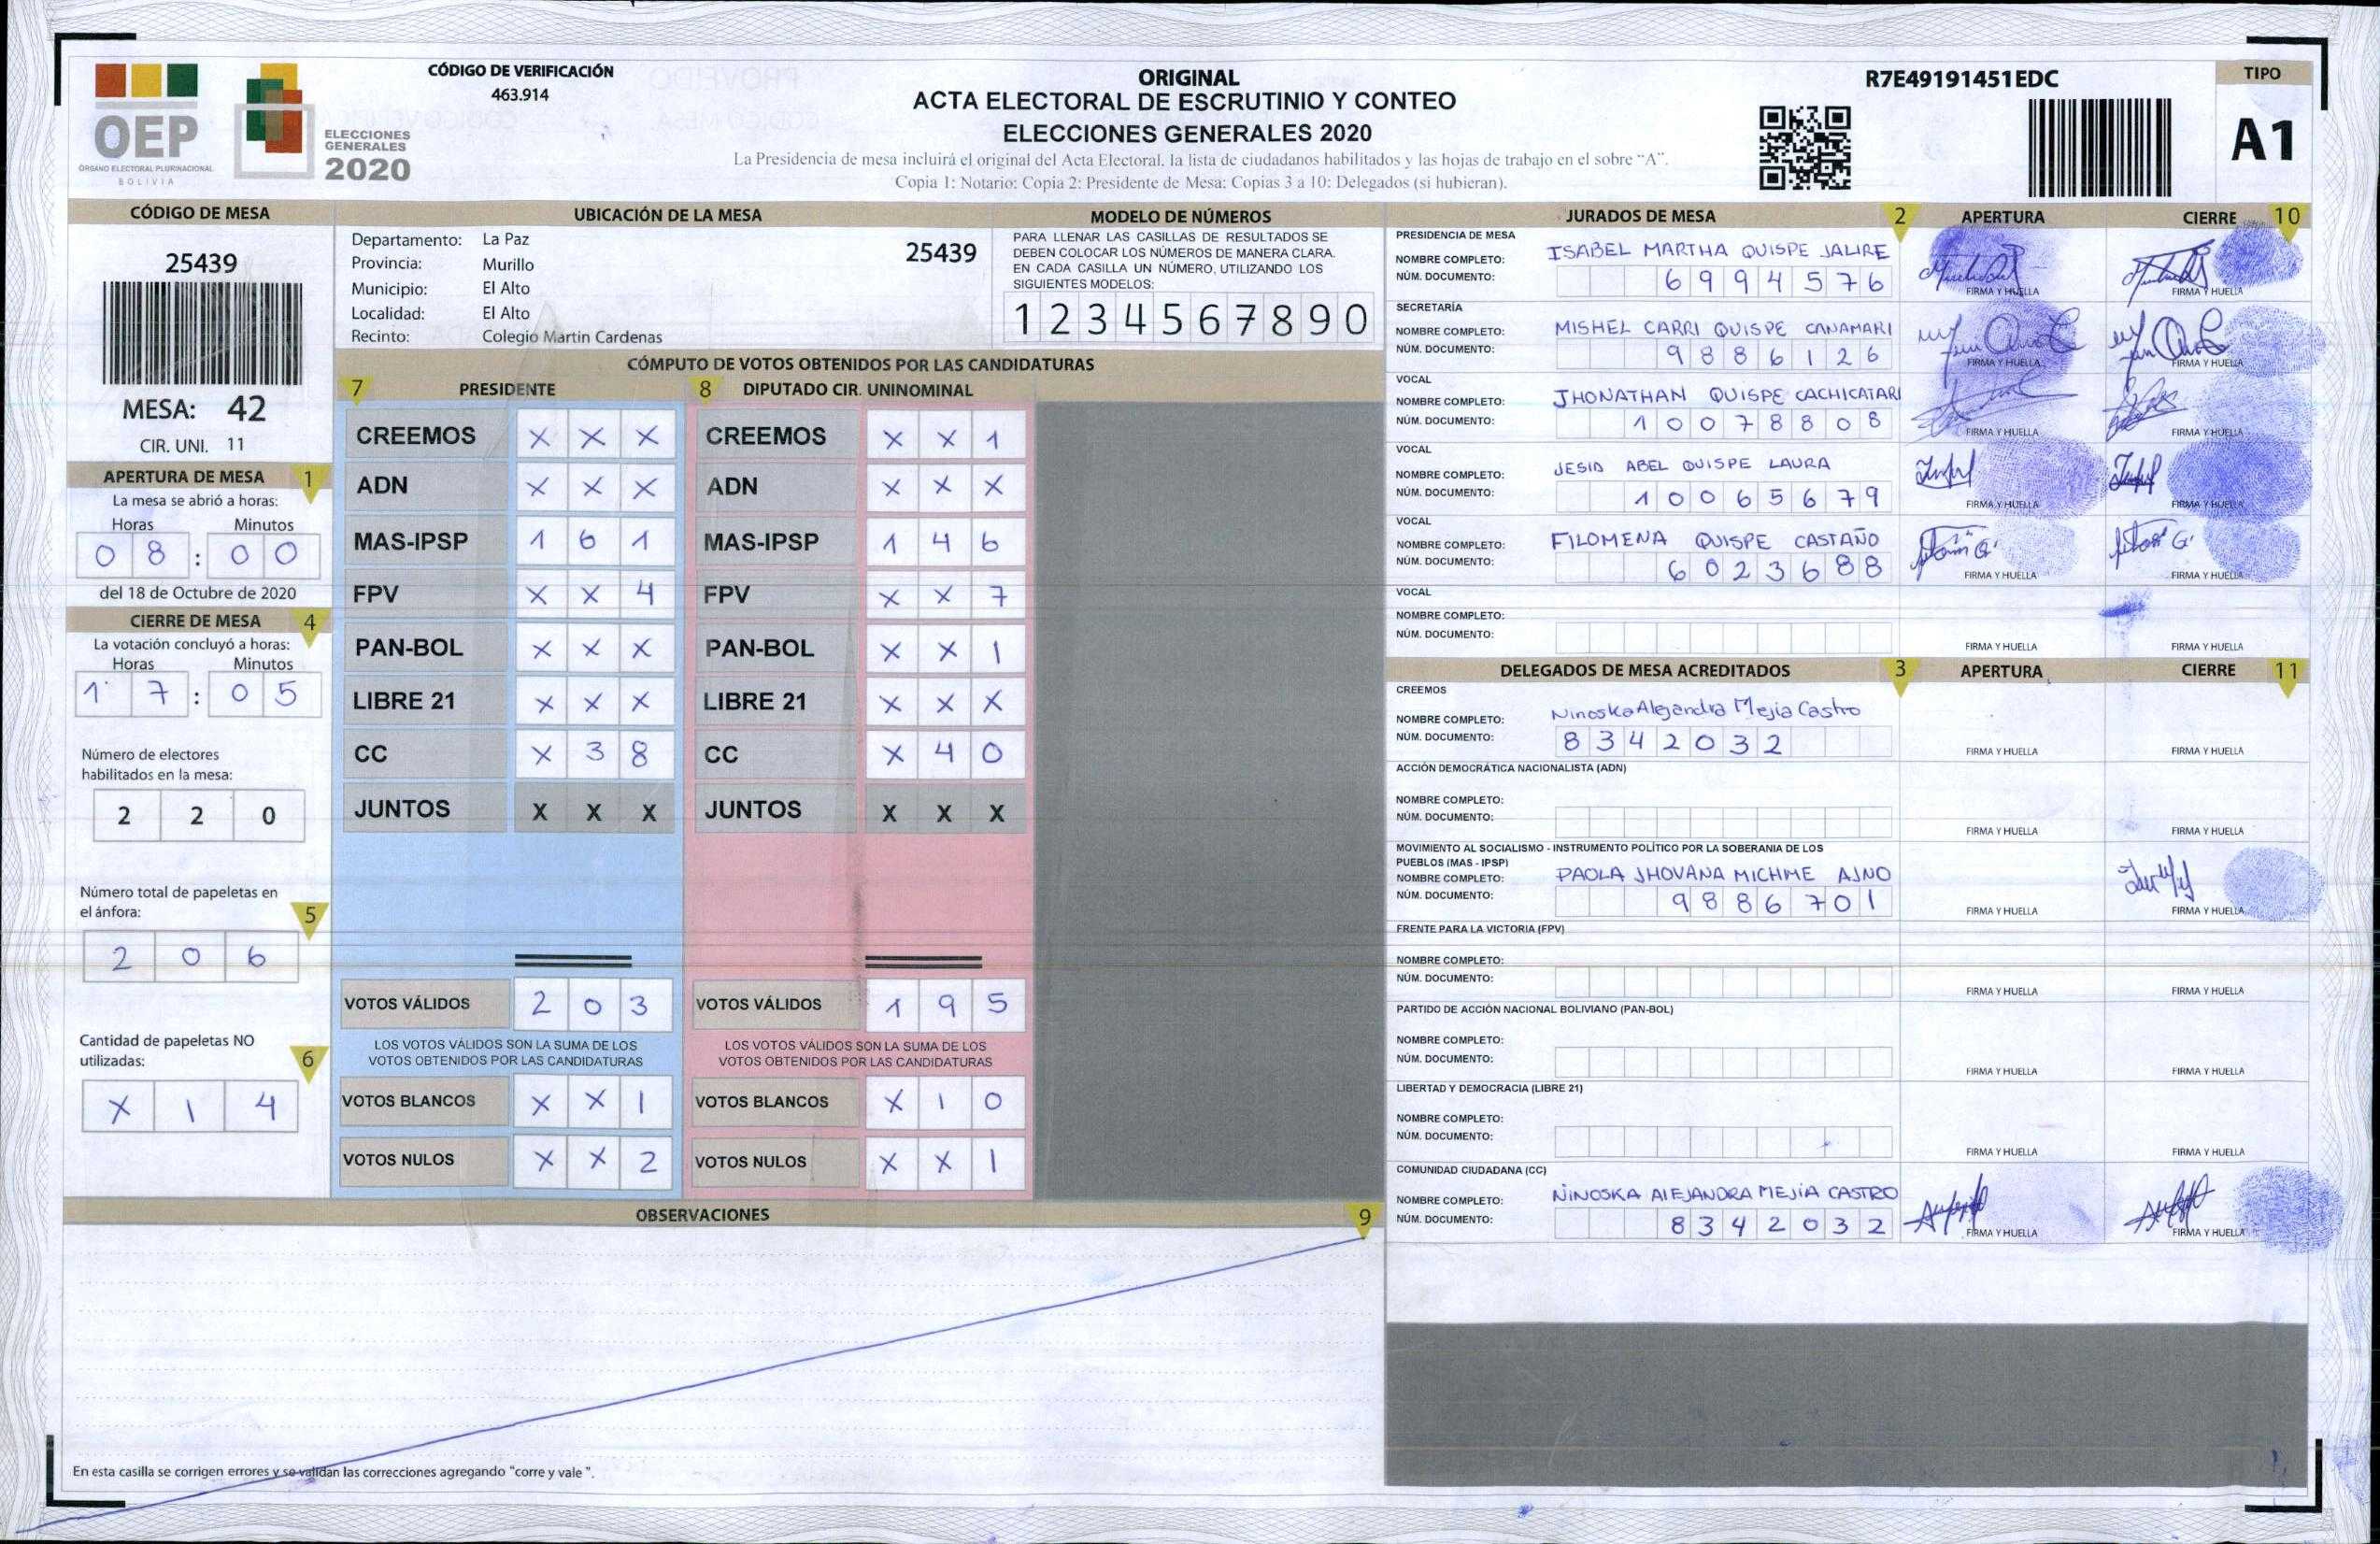 OEP
ÓRGANO ELECTORAL PLURINACIONAL
BOLIVIA
ELECCIONES
GENERALES
2020
CÓDIGO DE VERIFICACIÓN
463.914
ORIGINAL
ACTA ELECTORAL DE ESCRUTINIO Y CONTEO
ELECCIONES GENERALES 2020
La Presidencia de mesa incluirá el original del Acta Electoral, la lista de ciudadanos habilitados y las hojas de trabajo en el sobre "A".
Copia 1: Notario: Copia 2: Presidente de Mesa: Copias 3 a 10: Delegados (si hubieran).
R7E49191451EDC
TIPO
A1
CÓDIGO DE MESA
25439
MESA: 42
CIR. UNI. 11
APERTURA DE MESA 1
La mesa se abrió a horas:
Horas Minutos
0 8 : 0 0
del 18 de Octubre de 2020
CIERRE DE MESA 4
La votación concluyó a horas:
Horas Minutos
1 7 : 0 5
Número de electores
habilitados en la mesa:
2 2 0
Número total de papeletas en
el ánfora: 5
2 0 6
Cantidad de papeletas NO
utilizadas: 6
X 1 4
UBICACIÓN DE LA MESA
Departamento: La Paz 25439
Provincia: Murillo
Municipio: El Alto
Localidad: El Alto
Recinto: Colegio Martin Cardenas
MODELO DE NÚMEROS
PARA LLENAR LAS CASILLAS DE RESULTADOS SE
DEBEN COLOCAR LOS NÚMEROS DE MANERA CLARA.
EN CADA CASILLA UN NÚMERO, UTILIZANDO LOS
SIGUIENTES MODELOS:
1 2 3 4 5 6 7 8 9 0
CÓMPUTO DE VOTOS OBTENIDOS POR LAS CANDIDATURAS
7 PRESIDENTE 8 DIPUTADO CIR. UNINOMINAL
CREEMOS X X X CREEMOS X X 1
ADN X X X ADN X X X
MAS-IPSP 1 6 1 MAS-IPSP 1 4 6
FPV X X 4 FPV X X 7
PAN-BOL X X X PAN-BOL X X 1
LIBRE 21 X X X LIBRE 21 X X X
CC X 3 8 CC X 4 0
JUNTOS X X X JUNTOS X X X
VOTOS VÁLIDOS 2 0 3 VOTOS VÁLIDOS 1 9 5
LOS VOTOS VÁLIDOS SON LA SUMA DE LOS LOS VOTOS VÁLIDOS SON LA SUMA DE LOS
VOTOS OBTENIDOS POR LAS CANDIDATURAS VOTOS OBTENIDOS POR LAS CANDIDATURAS
VOTOS BLANCOS X X 1 VOTOS BLANCOS X 1 0
VOTOS NULOS X X 2 VOTOS NULOS X X 1
OBSERVACIONES 9
En esta casilla se corrigen errores y se validan las correcciones agregando "corre y vale ".
JURADOS DE MESA 2 APERTURA CIERRE 10
PRESIDENCIA DE MESA
NOMBRE COMPLETO: ISABEL MARTHA QUISPE JALIRE
NÚM. DOCUMENTO: 6 9 9 4 5 7 6 FIRMA Y HUELLA FIRMA Y HUELLA
SECRETARÍA
NOMBRE COMPLETO: MISHEL CARRI QUISPE CANAMARI
NÚM. DOCUMENTO: 9 8 8 6 1 2 6 FIRMA Y HUELLA FIRMA Y HUELLA
VOCAL
NOMBRE COMPLETO: JHONATHAN QUISPE CACHICATARI
NÚM. DOCUMENTO: 1 0 0 7 8 8 0 8 FIRMA Y HUELLA FIRMA Y HUELLA
VOCAL
NOMBRE COMPLETO: JESID ABEL QUISPE LAURA
NÚM. DOCUMENTO: 1 0 0 6 5 6 7 9 FIRMA Y HUELLA FIRMA Y HUELLA
VOCAL
NOMBRE COMPLETO: FILOMENA QUISPE CASTAÑO
NÚM. DOCUMENTO: 6 0 2 3 6 8 8 FIRMA Y HUELLA FIRMA Y HUELLA
VOCAL
NOMBRE COMPLETO:
NÚM. DOCUMENTO: FIRMA Y HUELLA FIRMA Y HUELLA
DELEGADOS DE MESA ACREDITADOS 3 APERTURA CIERRE 11
CREEMOS
NOMBRE COMPLETO: Ninoska Alejandra Mejia Castro
NÚM. DOCUMENTO: 8 3 4 2 0 3 2 FIRMA Y HUELLA FIRMA Y HUELLA
ACCIÓN DEMOCRÁTICA NACIONALISTA (ADN)
NOMBRE COMPLETO:
NÚM. DOCUMENTO: FIRMA Y HUELLA FIRMA Y HUELLA
MOVIMIENTO AL SOCIALISMO - INSTRUMENTO POLÍTICO POR LA SOBERANIA DE LOS
PUEBLOS (MAS - IPSP)
NOMBRE COMPLETO: PAOLA JHOVANA MICHME AJNO
NÚM. DOCUMENTO: 9 8 8 6 7 0 1 FIRMA Y HUELLA FIRMA Y HUELLA
FRENTE PARA LA VICTORIA (FPV)
NOMBRE COMPLETO:
NÚM. DOCUMENTO: FIRMA Y HUELLA FIRMA Y HUELLA
PARTIDO DE ACCIÓN NACIONAL BOLIVIANO (PAN-BOL)
NOMBRE COMPLETO:
NÚM. DOCUMENTO: FIRMA Y HUELLA FIRMA Y HUELLA
LIBERTAD Y DEMOCRACIA (LIBRE 21)
NOMBRE COMPLETO:
NÚM. DOCUMENTO: FIRMA Y HUELLA FIRMA Y HUELLA
COMUNIDAD CIUDADANA (CC)
NOMBRE COMPLETO: NINOSKA AlEJANDRA MEJIA CASTRO
NÚM. DOCUMENTO: 8 3 4 2 0 3 2 FIRMA Y HUELLA FIRMA Y HUELLA